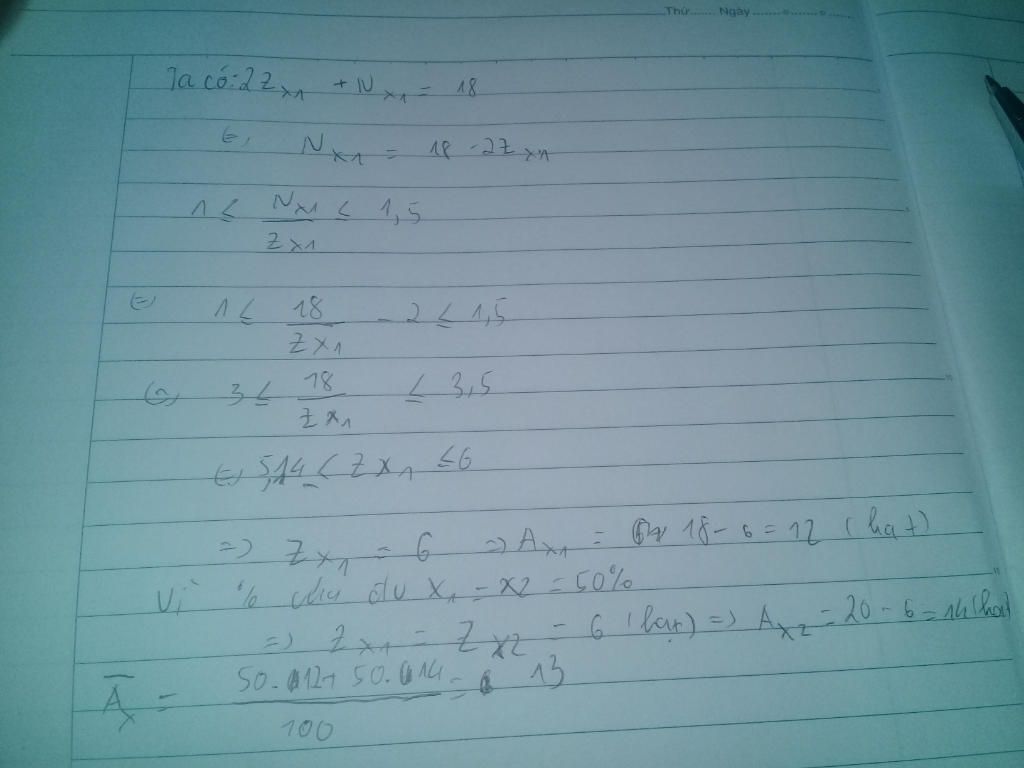 Thứ ....... Ngày ..............
Ta có: 2Z_{X1} + N_{X1} = 18
N_{X1} = 18 - 2Z_{X1}
1 ≤ N_{X1}/Z_{X1} ≤ 1,5
⇔ 1 ≤ 18/Z_{X1} - 2 ≤ 1,5
⇔ 3 ≤ 18/Z_{X1} ≤ 3,5
⇔ 5,14 ≤ Z_{X1} ≤ 6
=> Z_{X1} = 6 => A_{X1} = 18 - 6 = 12 (hạt)
Vì % X_1 = X2 = 50%
=> Z_{X1} = Z_{X2} = 6 (hạt) => A_{X2} = 20 - 6 = 14 (hạt)
Ā_X = (50.12 + 50.14)/100 = 13